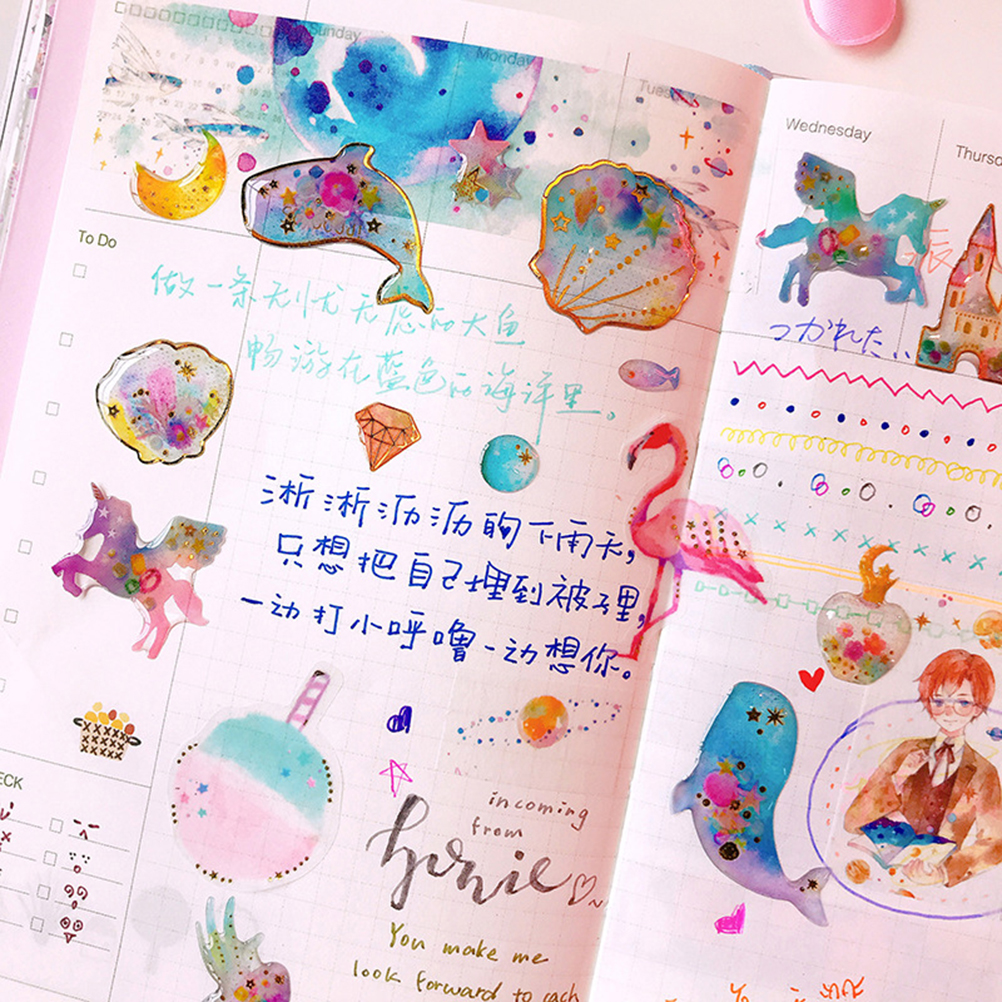 Sunday
Monday
Tues
Wednesday
Thurs
To Do
做一条无忧无虑的大鱼
畅游在蓝色的海洋里。
つかれた、、
淅淅沥沥的下雨天,
只想把自己埋到被子里,
一动打小呼噜一动想你。
ECK
incoming
from
You make me
look forward to each